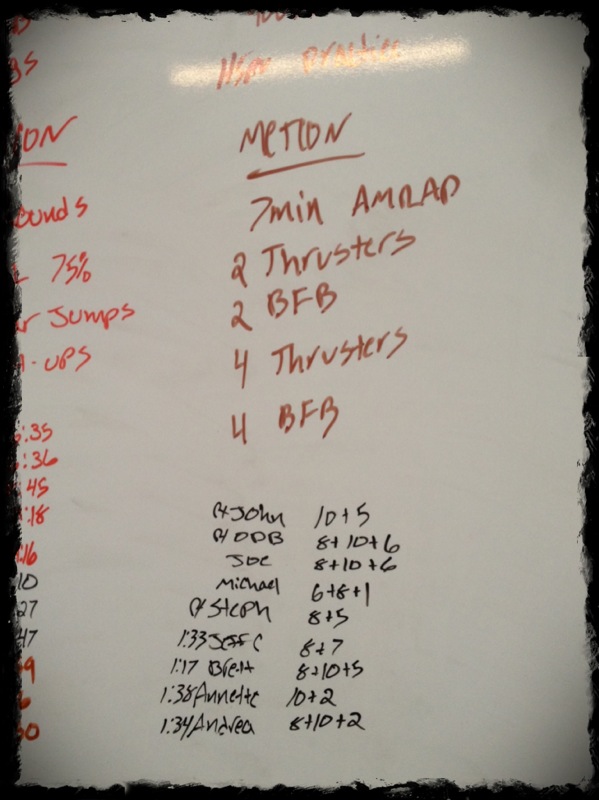 ON
ounds
75%
Jumps
-ups
:35
:36
:45
:18
16
10
27
47
practice
METCON
7min AMRAP
2 Thrusters
2 BFB
4 Thrusters
4 BFB
John 10+5
ODB 8+10+6
Joe 8+10+6
Michael 6+8+1
Steph 8+5
1:33 Jeff C 8+7
1:17 Brett 8+10+5
1:38 Annette 10+2
1:34 Andrea 8+10+2